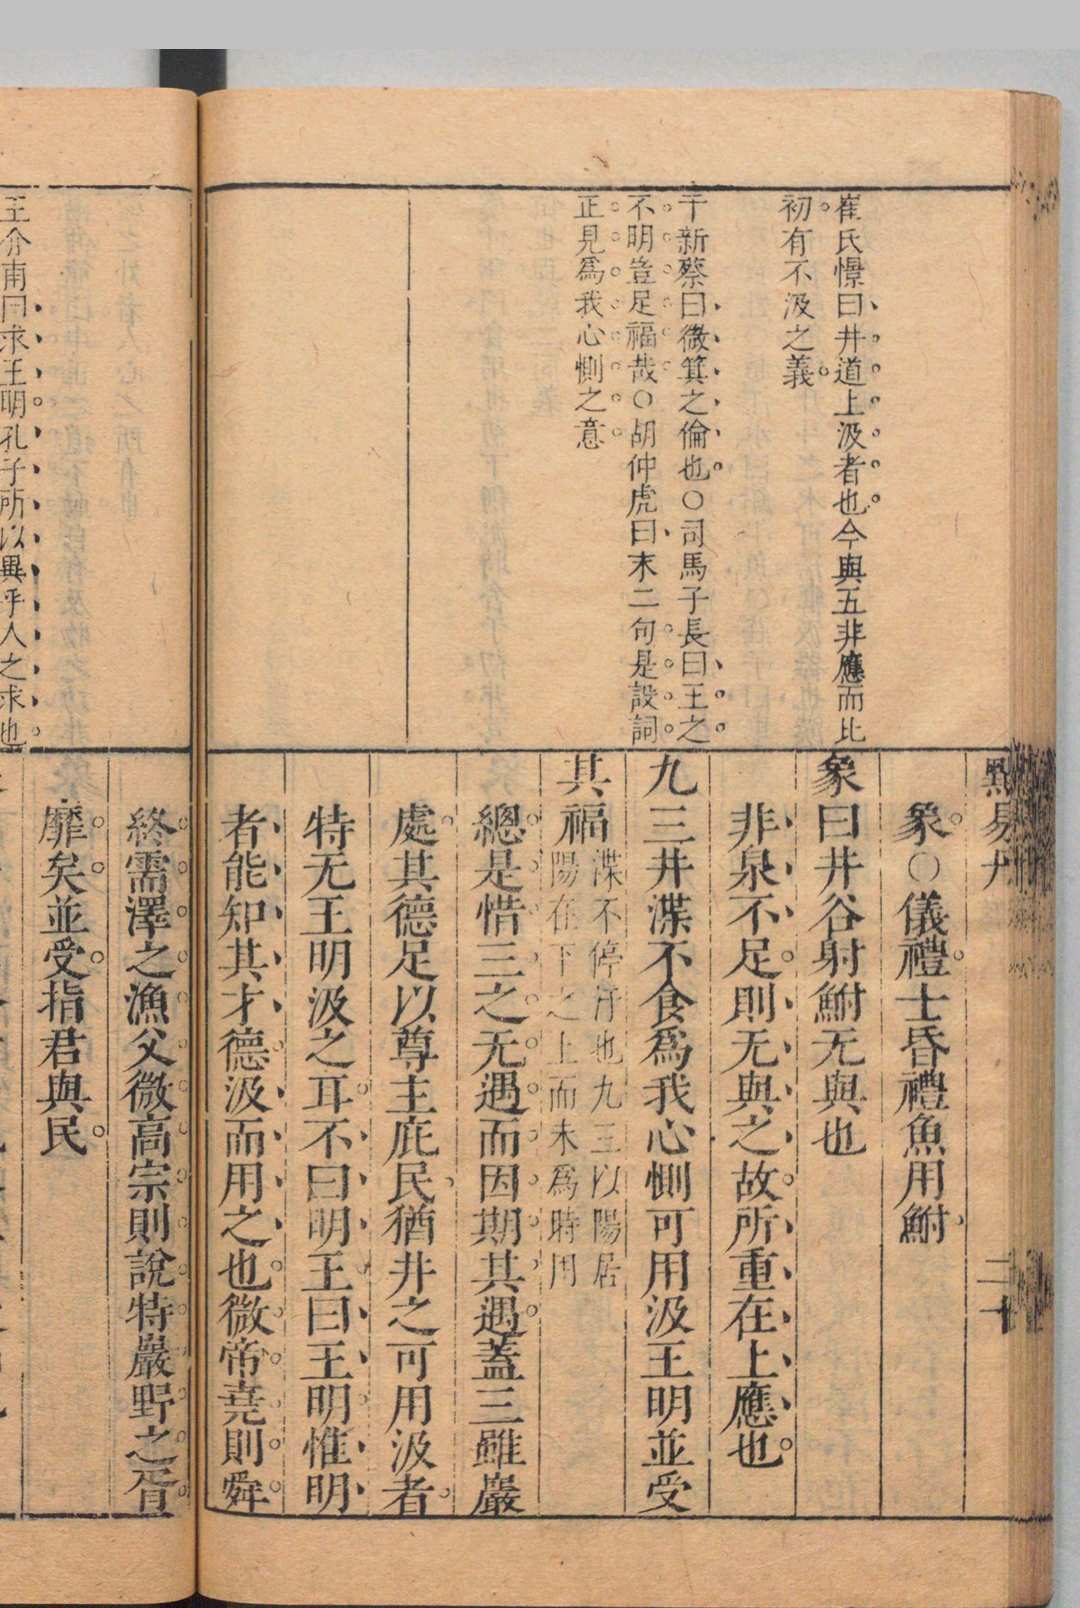 崔氏憬曰井道上汲者也今與五非應而比
初有不汲之義
干新蔡曰微箕之倫也○司馬子長曰王之
不明豈足福哉○胡仲虎曰末二句是設詞
正見爲我心惻之意
易
二十
象○儀禮士昏禮魚用鮒
象曰井谷射鮒无與也
非泉不足則无與之故所重在上應也
九三井渫不食爲我心惻可用汲王明並受
其福
渫不停汙也九三以陽居
陽在下之上而未爲時用
總是惜三之无遇而因期其遇蓋三雖嚴
處其德足以尊主庇民猶井之可用汲者
特无王明汲之耳不曰明王曰王明惟明
者能知其才德汲而用之也微帝堯則舜
王介甫曰求王明孔子所以異乎人之求也
終需澤之漁父微高宗則說特嚴野之胥
靡矣並受指君與民